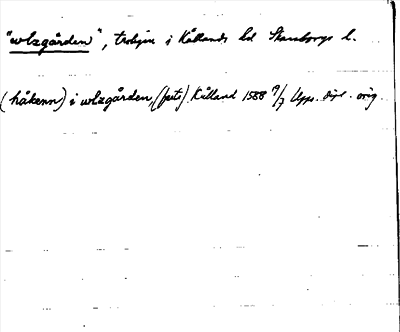 "wlzgården", troligen i Kållands hd Skaraborgs l.
(håkenn) i wlzgården, (fats) Kålland 1588 9/7 Upps. dipl. orig.